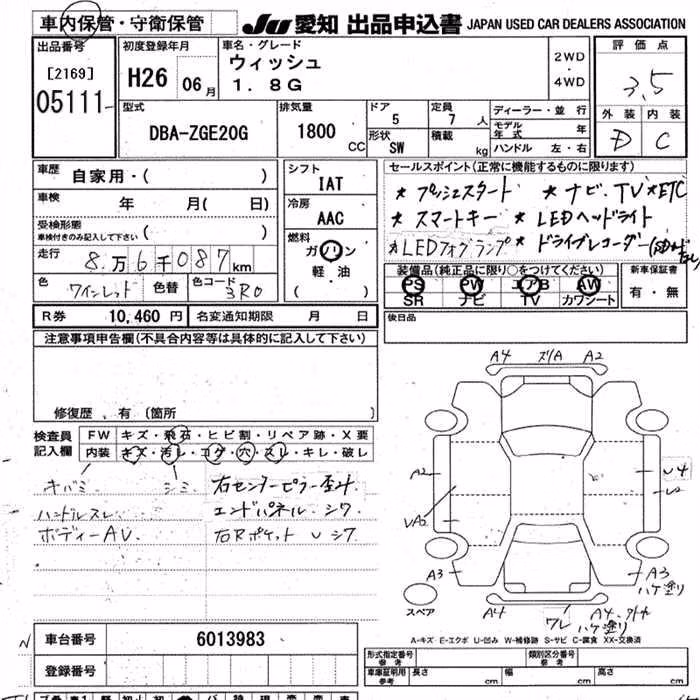 車内保管・守衛保管
JU 愛知 出品申込書 JAPAN USED CAR DEALERS ASSOCIATION
出品番号
[2169]
05111
初度登録年月
H26 06月
車名・グレード
ウィッシュ
1.8G
2WD
・
4WD
評価点
3.5
外装 内装
D C
型式
DBA-ZGE20G
排気量
1800 CC
ドア
5
形状
SW
定員
7 人
積載
kg
ディーラー・並行
モデル年式 年
ハンドル 左・右
車歴
自家用・( )
車検
年 月( 日)
受検形態
車検付きのみ記入して下さい ( )
走行
8万6千087km
色
ワインレッド
色替
色コード
3R0
シフト
IAT
冷房
AAC
燃料
ガソリン
軽油
( )
セールスポイント(正常に機能するものに限ります)
★ プッシュスタート ★ ナビ.TV ★ETC
★ スマートキー ★ LEDヘッドライト
★ LEDフォグランプ ★ ドライブレコーダー
装備品(純正品に限り○をつけてください)
PS PW エアB AW
SR ナビ TV カワシート
新車保証書
有・無
R券 10,460 円
名変通知期限 月 日
後日品
注意事項申告欄(不具合内容等は具体的に記入して下さい)
修復歴、有(箇所 )
検査員
記入欄
FW キズ・飛石・ヒビ割・リペア跡・X要
内装 キズ・汚レ・コゲ・穴・スレ・キレ・破レ
キバミ シミ 右センターピラー歪ミ
ハンドルスレ エンドパネル シワ
ボディーAU 右Rポケット U シワ
A4 ズリA A2
A2
U4
U2
UA2
A3
A3
ハケ塗り
スペア
A4
ワレ
A4
ハケ塗り
A-キズ E-エクボ U-凹み W-補修跡 S-サビ C-腐食 XX-交換済
車台番号 6013983
登録番号
形式指定番号
参考
類別区分番号
参考
車庫証明用
参考
長さ cm 幅 cm 高さ cm